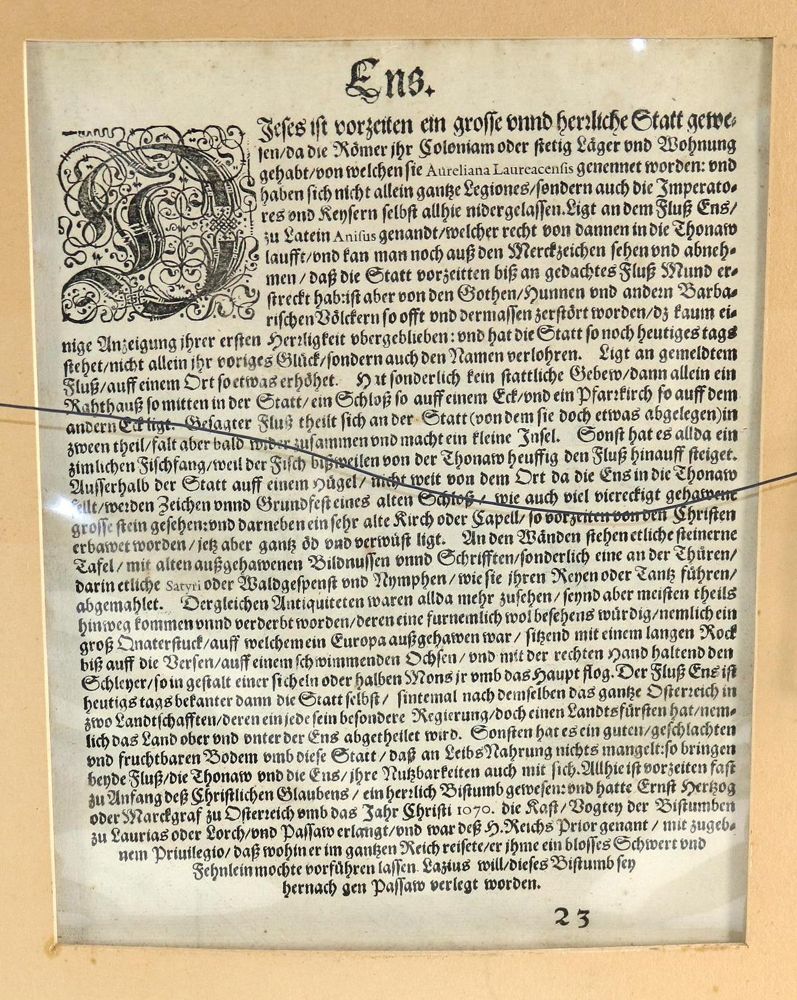 Ens.
DIeses ist vorzeiten ein grosse vnnd herrliche Statt gewe-
sen/da die Römer jhr Coloniam oder stetig Läger vnd Wohnung
gehabt/von welchen sie Aureliana Laureacensis genennet worden: vnd
haben sich nicht allein gantze Legiones/sondern auch die Imperato-
res vnd Keysern selbst allhie nidergelassen. Ligt an dem Fluß Ens/
zu Latein Anisus genandt/welcher recht von dannen in die Thonaw
laufft/vnd kan man noch auß den Merckzeichen sehen vnd abneh-
men/ daß die Statt vorzeitten biß an gedachtes Fluß Mund er-
streckt hab: ist aber von den Gothen/Hunnen vnd andern Barba-
rischen Völckern so offt vnd dermassen zerstört worden/dz kaum ei-
nige Anzeigung jhrer ersten Herrligkeit vbergeblieben: vnd hat die Statt so noch heutiges tags
stehet/nicht allein jhr voriges Glück/sondern auch den Namen verlohren. Ligt an gemeldtem
Fluß/auff einem Ort so etwas erhöhet. Hat sonderlich kein stattliche Gebew/dann allein ein
Rahthauß so mitten in der Statt/ein Schloß so auff einem Eck/vnd ein Pfarrkirch so auff dem
andern Eck ligt. Gesagter Fluß theilt sich an der Statt (von dem sie doch etwas abgelegen) in
zween theil/falt aber bald wider zusammen vnd macht ein kleine Insel. Sonst hat es allda ein
zimlichen Fischfang/weil der Fisch bißweilen von der Thonaw heuffig den Fluß hinauff steiget.
Ausserhalb der Statt auff einem Hügel/ nicht weit von dem Ort da die Ens in die Thonaw
fellt/werden Zeichen vnnd Grundfest eines alten Schloß/ wie auch viel viereckigt gehawene
grosse stein gesehen: vnd darneben ein sehr alte Kirch oder Capell/ so vorzeiten von den Christen
erbawet worden/ jetz aber gantz öd vnd verwüst ligt. An den Wänden stehen etliche steinerne
Tafel/ mit alten außgehawenen Bildnussen vnnd Schrifften/sonderlich eine an der Thüren/
darin etliche Satyri oder Waldgespenst vnd Nymphen/ wie sie jhren Reyen oder Tantz führen/
abgemahlet. Dergleichen Antiquiteten waren allda mehr zusehen/ seynd aber meisten theils
hinweg kommen vnnd verderbt worden/deren eine furnemlich wol besehens würdig/nemlich ein
groß Quaterstuck/auff welchem ein Europa außgehawen war/ sitzend mit einem langen Rock
biß auff die Versen/auff einem schwimmenden Ochsen/ vnd mit der rechten Hand haltend den
Schleyer/so in gestalt einer sicheln oder halben Mons jr vmb das Haupt flog. Der Fluß Ens ist
heutigs tags bekanter dann die Statt selbst/ sintemal nach demselben das gantze Osterreich in
zwo Landtschafften/deren ein jede sein besondere Regierung/doch einen Landtsfürsten hat/nem-
lich das Land ober vnd vnter der Ens abgetheilet wird. Sonsten hat es ein guten/geschlachten
vnd fruchtbaren Bodem vmb diese Statt/ daß an Leibs Nahrung nichts mangelt: so bringen
beyde Fluß/die Thonaw vnd die Ens/ jhre Nutzbarkeiten auch mit sich. Allhie ist vorzeiten fast
zu Anfang deß Christlichen Glaubens/ ein herrlich Bistumb gewesen: vnd hatte Ernst Hertzog
oder Marckgraf zu Osterreich vmb das Jahr Christi 1070. die Kast/ Vogtey der Bistumben
zu Laurias oder Lorch/vnd Passaw erlangt/vnd war deß H. Reichs Prior genant/ mit zugeb-
nem Priuilegio/ daß wohin er im gantzen Reich reisete/er jhme ein blosses Schwert vnd
Fehnlein mochte vorführen lassen. Lazius will/dieses Bistumb sey
hernach gen Passaw verlegt worden.
23